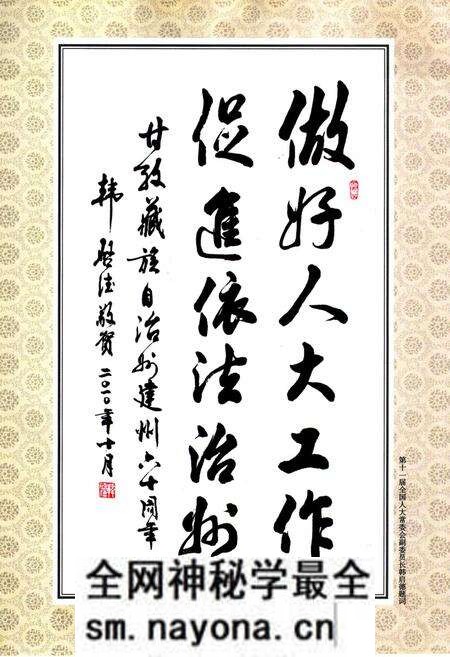 做好人大工作
促進依法治州
甘孜藏族自治州建州六十周年
韩启德敬贺 二〇一〇年十月
第十一届全国人大常委会副委员长韩启德题词
全网神秘学最全
sm.nayona.cn